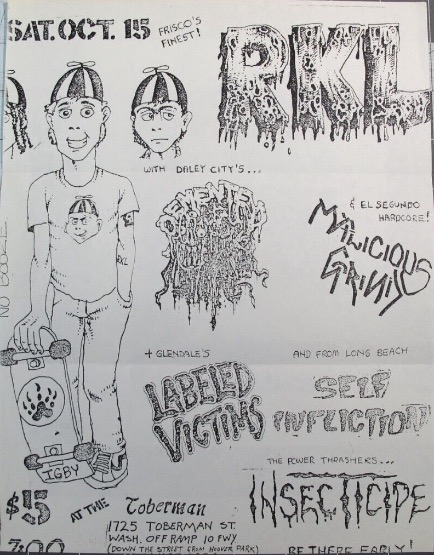 SAT. OCT. 15
FRISCO'S
FINEST!
RKL
WITH DALEY CITY'S...
& EL SEGUNDO
HARDCORE!
MALICIOUS
GRIND
NO BOOZE
RKL
+ GLENDALE'S
LABELED
VICTIMS
AND FROM LONG BEACH
SELF
INFLICTION
THE POWER THRASHERS...
INSECTICIDE
IGBY
$5
AT THE
Toberman
1725 TOBERMAN ST.
WASH. OFF RAMP 10 FWY
(DOWN THE STREET FROM HOOVER PARK)
7:00
BE THERE EARLY!